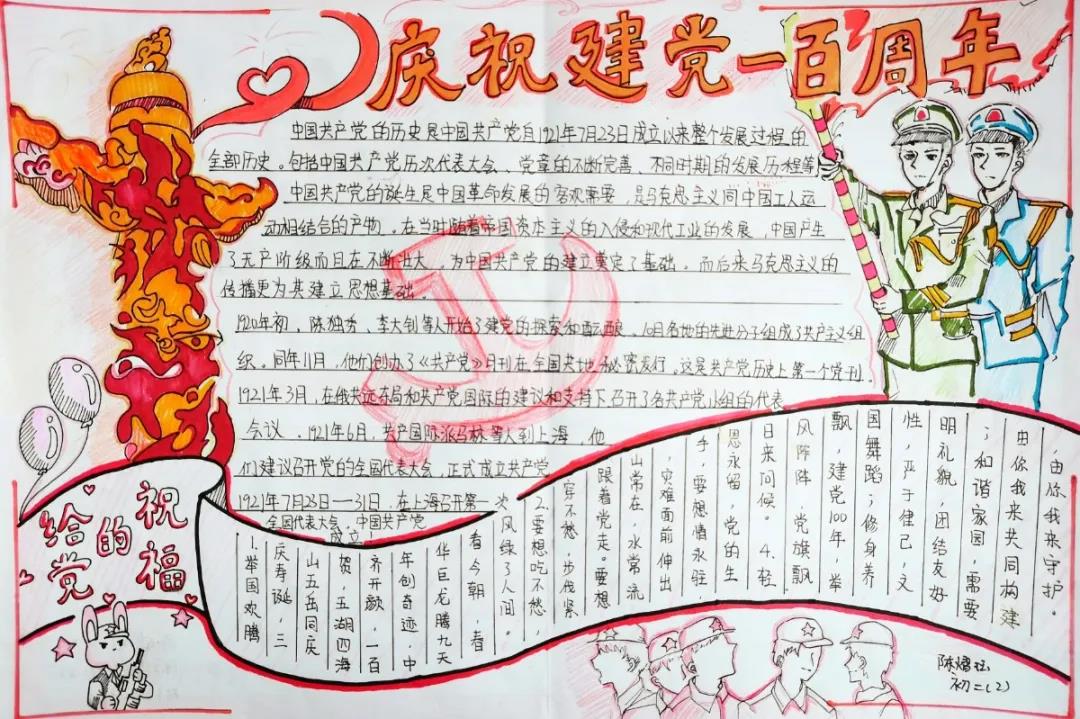 庆祝建党一百周年
中国共产党的历史是中国共产党自1921年7月23日成立以来整个发展过程的
全部历史。包括中国共产党历次代表大会、党章的不断完善、不同时期的发展历程等
中国共产党的诞生是中国革命发展的客观需要，是马克思主义同中国工人运
动相结合的产物。在当时随着帝国资本主义的入侵和现代工业的发展，中国产生
了无产阶级而且在不断壮大，为中国共产党的建立奠定了基础。而后来马克思主义的
传播更为共建立思想基础。
1920年初，陈独秀、李大钊等人开始了建党的探索和酝酿。10月各地的先进分子组成了共产主义组
织。同年11月，他们创办了《共产党》月刊在全国其地秘密发行。这是共产党历史上第一个党刊。
1921年3月，在俄共远东局和共产党国际的建议和支持下召开了各共产党小组的代表
会议。1921年6月，共产国际派马林等人到上海，他
们建议召开党的全国代表大会，正式成立共产党
1921年7月23日—31日，在上海召开第一次
全国代表大会，中国共产党
成立！
给党
的
祝福
1.举国欢腾
庆寿诞，三
山五岳同庆
贺，五湖四海
齐开颜，一百
年创奇迹，中
华巨龙腾九天
看今朝，春
风绿了人间。
2.要想吃不愁，
穿不愁，步伐紧
跟着党走。要想
山常在，水常流
，灾难面前伸出
手，要想情永驻，
恩永留，党的生
日来问候。4.轻
风阵阵，党旗飘
飘，建党100年，举
国舞蹈；修身养
性，严于律己，文
明礼貌，团结友好
；和谐家园，需要
由你我来共同构建
，由你我来守护。
陈
初二(2)